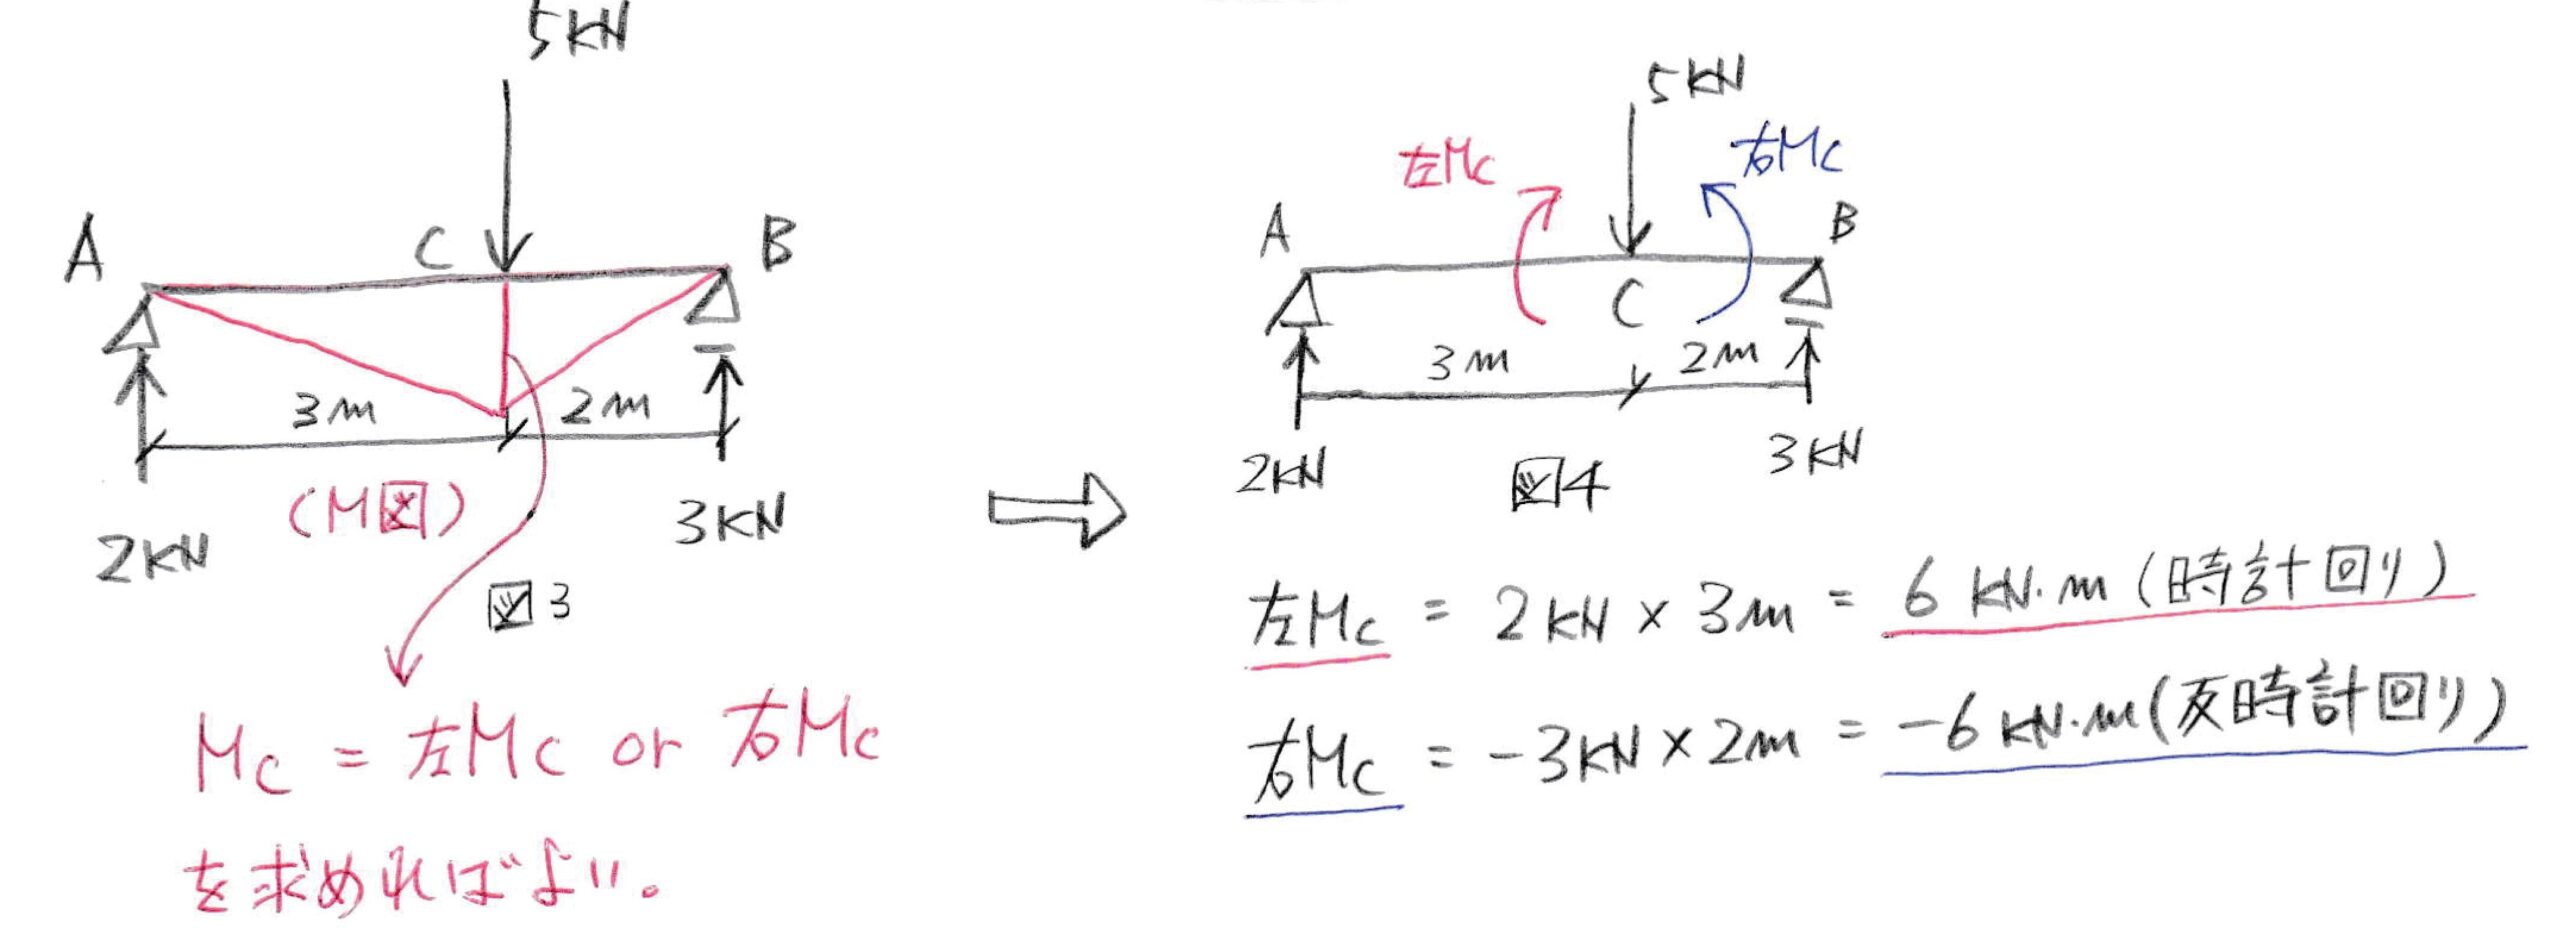 5KN
A
C
B
3m
2m
2KN
(M図)
3KN
図3
Mc = 左Mc or 右Mc
を求めればよい。
5KN
左Mc
右Mc
A
B
C
3m
2m
2KN
図4
3KN
左Mc = 2KN × 3m = 6 KN・m (時計回り)
右Mc = -3KN × 2m = -6 KN・m (反時計回り)